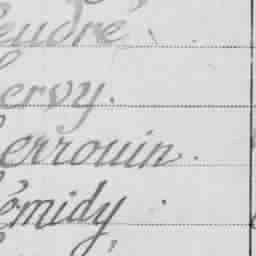 eudre
ervy.
errouin.
émidy.